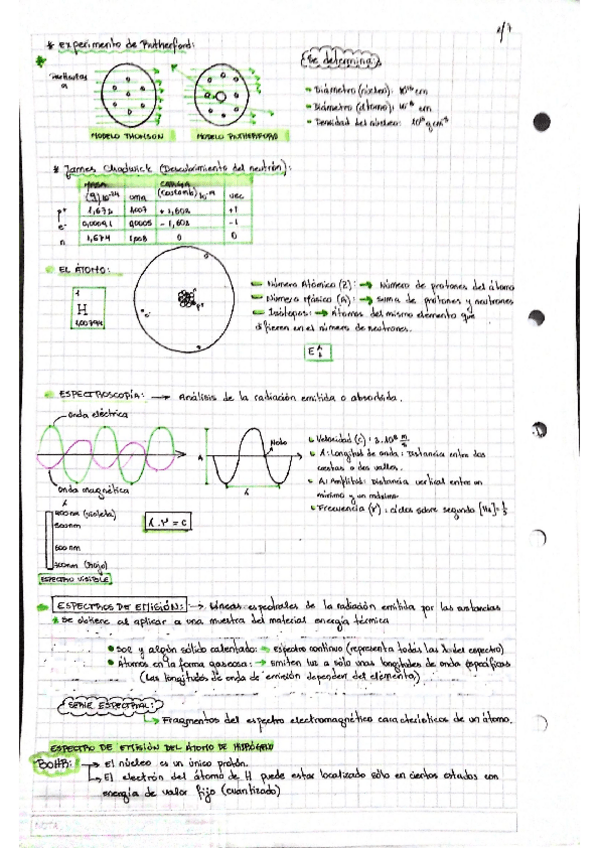 1/7
* Experimento de Rutherford:
Se determina:
Partículas
α
- Diámetro (núcleo): cm
- Diámetro (átomo): cm
- Densidad del núcleo:
MODELO THOMSON
MODELO RUTHERFORD
* James Chadwick (Descubrimiento del neutrón):
MASA CARGA
(g) 10⁻²⁴ uma (coulomb) 10⁻¹⁹ uec
p⁺ 1,672 1,007 +1,602 +1
e⁻ 0,00091 0,0005 -1,602 -1
n 1,674 1,008 0 0
EL ÁTOMO:
1
H
1,00794
Número Atómico (Z): → Número de protones del átomo
Número Másico (A): → Suma de protones y neutrones
Isótopos: → Átomos del mismo elemento que
difieren en el número de neutrones.
ESPECTROSCOPÍA: → Análisis de la radiación emitida o absorbida.
Onda eléctrica
Nodo
A
λ
Onda magnética
Velocidad (c): 3·10⁸ m/s
λ: Longitud de onda: Distancia entre dos
crestas o dos valles.
A: Amplitud: Distancia vertical entre un
mínimo y un máximo
Frecuencia (ν): ciclos sobre segundo [Hz] = 1/s
λ
400nm (violeta)
500nm
600nm
(rojo)
λ·ν = c
ESPECTRO VISIBLE
ESPECTROS DE EMISIÓN: → Líneas espectrales de la radiación emitida por las sustancias
* Se obtiene al aplicar a una muestra del material energía térmica
• Sol y algún sólido calentado: → Espectro continuo (representa todas las λ del espectro)
• Átomos en la forma gaseosa: → Emiten luz a sólo unas longitudes de onda específicas
(Las longitudes de onda de emisión dependen del elemento)
SERIE ESPECTRAL:
→ Fragmentos del espectro electromagnético característicos de un átomo.
ESPECTRO DE EMISIÓN DEL ÁTOMO DE HIDRÓGENO
BOHR: → El núcleo es un único protón.
→ El electrón del átomo de H puede estar localizado sólo en ciertos estados con
energía de valor fijo (cuantizado)
NOTA